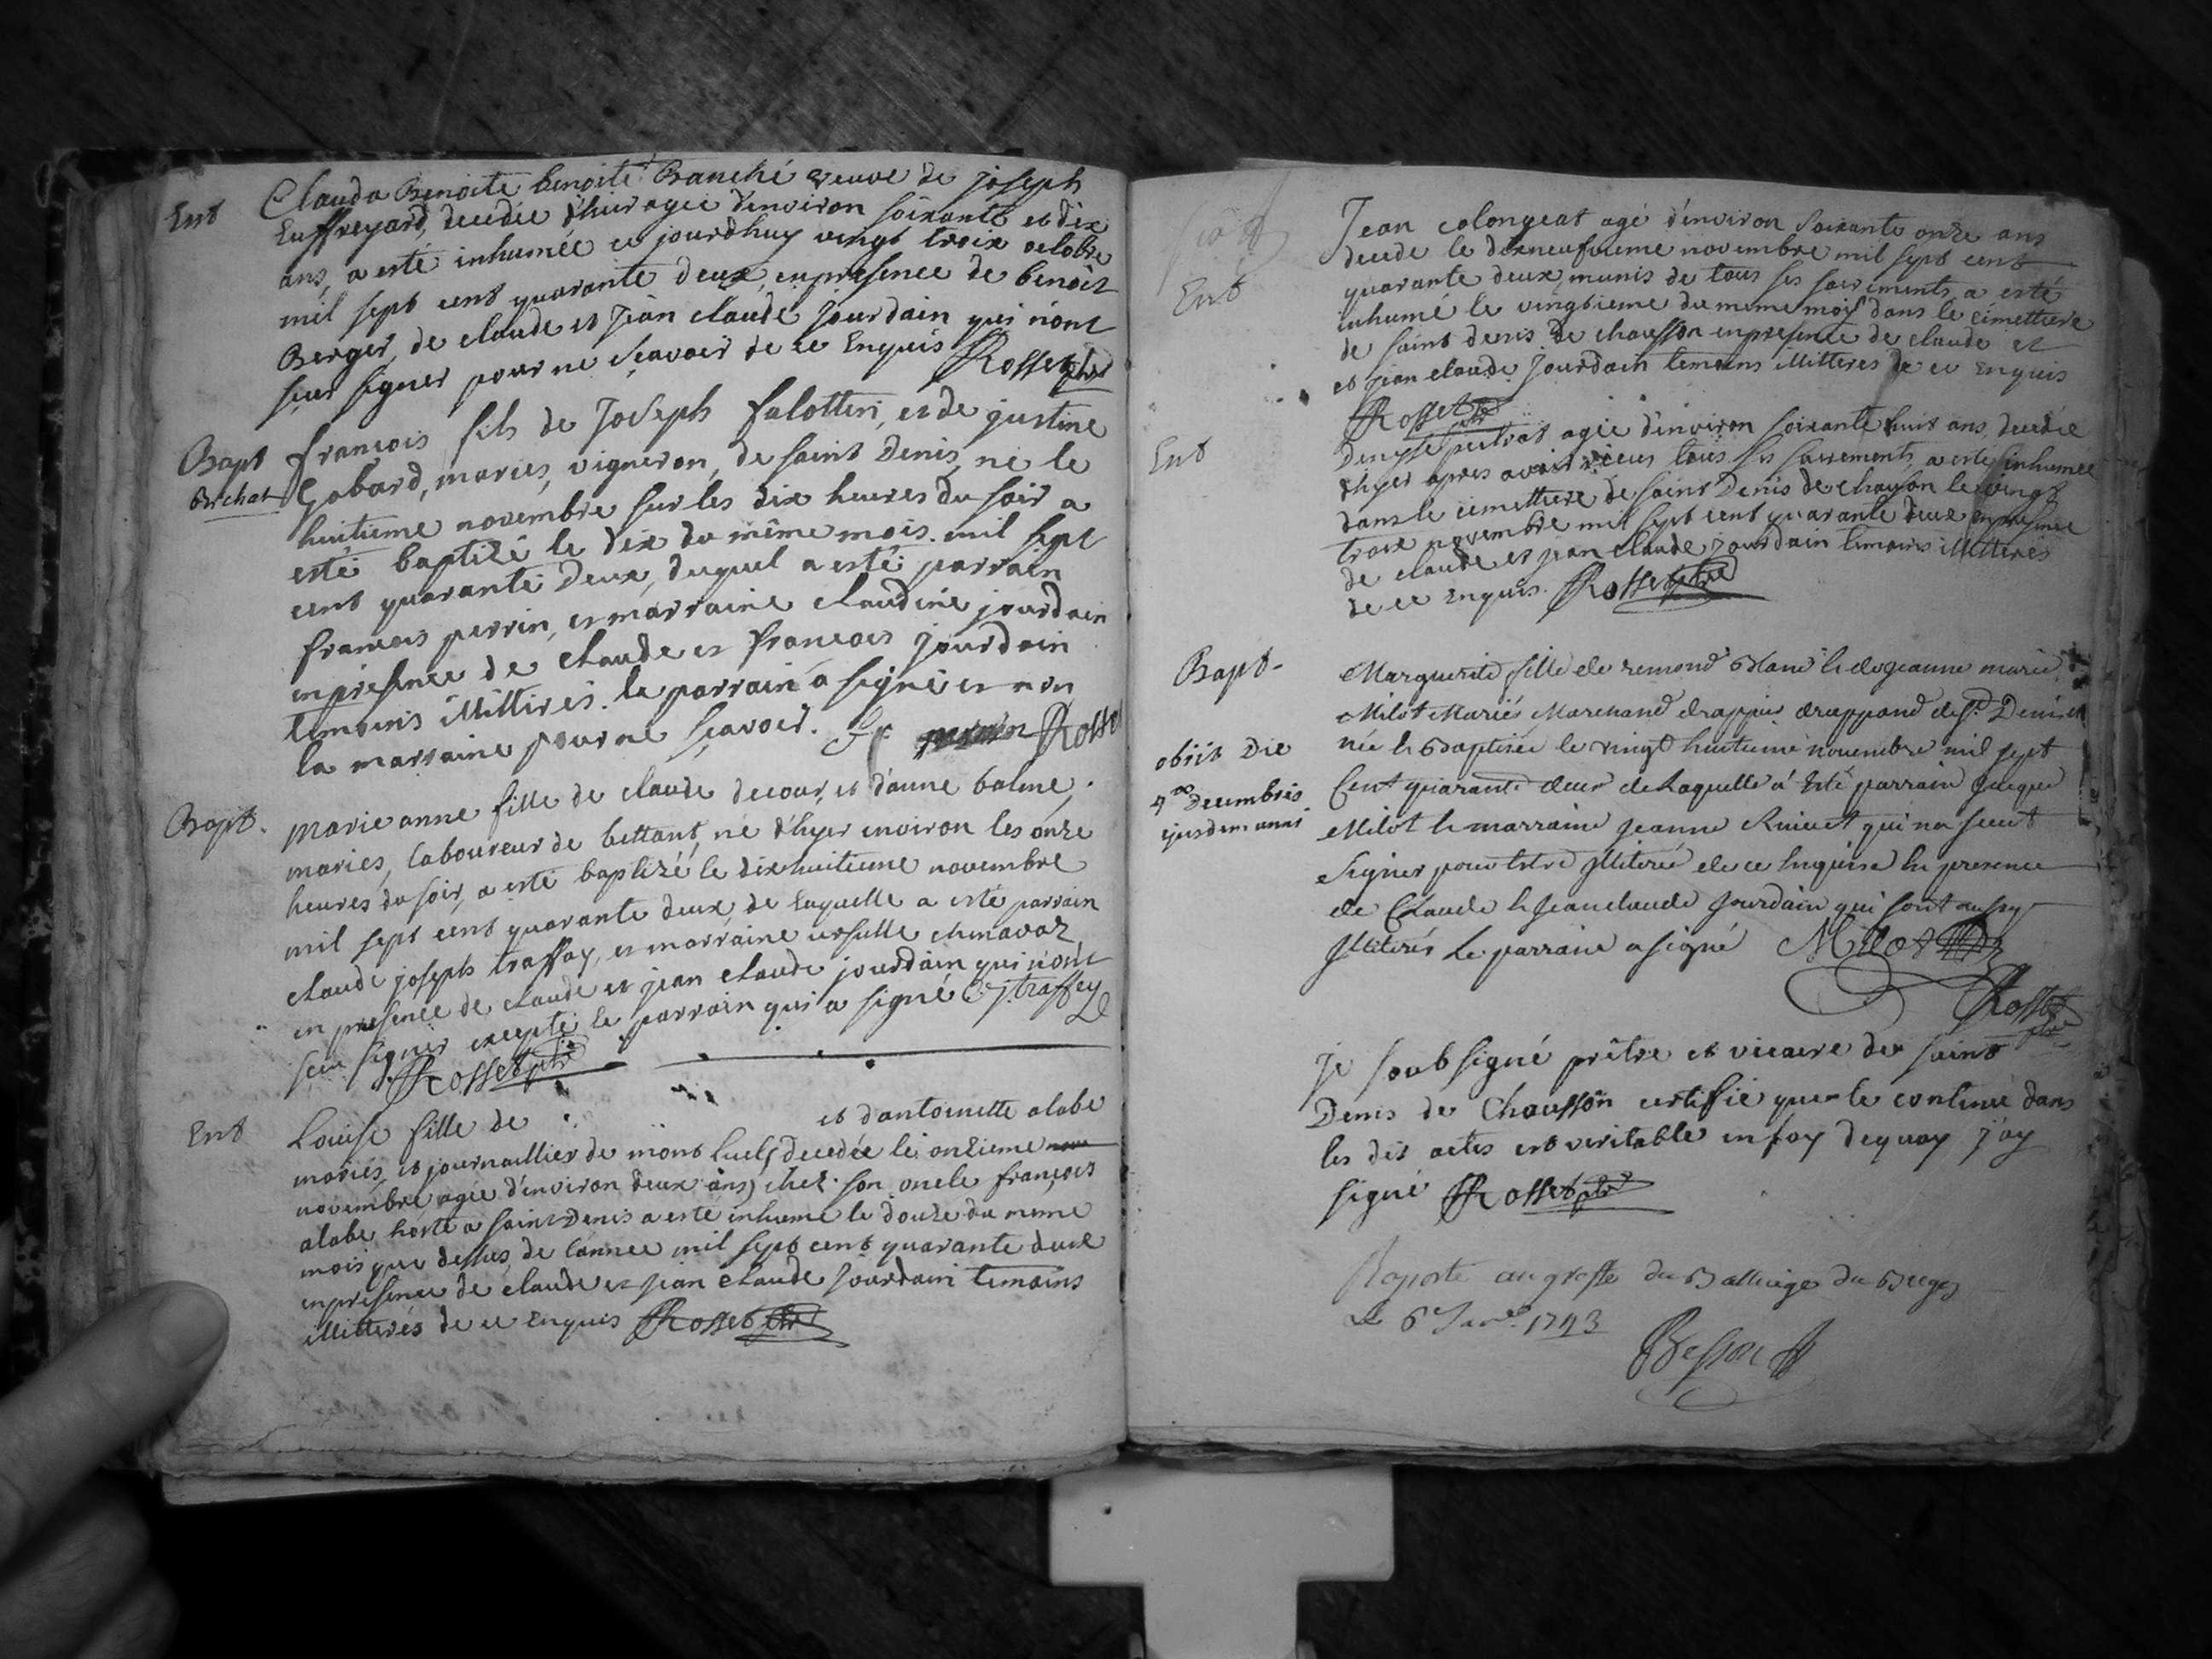 Ent
Clauda Benoite benoite Banché veuve de joseph
Euffreyard, decedée d'hier agée d'environ soixante et dix
ans, a esté inhumée ce jourdhuy vingt troix octobre
mil sept cent quarante deux, en presence de benoit
Berger, de claude et Jean claude Jourdain qui n'ont
sçeu signer pour ne sçavoir de ce Enquis Rosset ptre
Bapt
Brichat
françois fils de Joseph falotten, et de justine
Gobard, mariés, vigneron, de saint Denis, né le
huitieme novembre sur les dix heures du soir a
esté baptizé le dix du même mois. mil sept
cent quarante Deux, duquel a esté parrain
francois perrin, et marraine claudine jourdain
en presence de claude et francois jourdain
temoins illittires. le parrain a signé et non
la marraine pour ne sçavoir. fr perrin Rosset
Bapt.
Marie anne fille de claude decour, et d'anne balme,
mariés, laboureur de bettant, né d'hyer environ les onze
heures du soir, a esté baptizéé le dixhuitieme novembre
mil sept cent quarante deux, de laquelle a esté parrain
claude joseph traffay, et marraine ursulle chenavaz
en presence de claude et jean claude jourdain qui n'ont
sceu signer excepté le parrain qui a signé C. j. traffey
Rosset ptre
Ent
Louise fille de et d'antoinette alabe
mariés, et journaillier de mont luel, decedée le onzieme
novembre agée d'environ deux ans, chez son oncle françois
alabe hoste a saint Denis a esté inhumé le douze du meme
mois que dessus, de l'année mil sept cent quarante deux
en presence de claude et jean claude Jourdain temoins
illitterés de ce enquis Rosset ptre
Ent
Jean colongeat agé d'environ soixante onze ans
decede le dixneufvieme novembre mil sept cent
quarante deux, munis de tous ses sacrements a esté
inhumé le vingtieme du meme mois dans le cimettiere
de saint denis de chausson en presence de claude et
et jean claude Jourdain temoins illitteres de ce enquis
Rosset ptre
Ent
Denyse peutrat agée d'environ soixante huit ans, decedée
d'hyer apres avoir receu tous ses sacrements, a esté inhumée
dans le cimettiere de saint Denis de chauson le vingt
troix novembre mil sept cent quarante deux en presence
de claude et jean claude jourdain temoins illitteres
de ce enquis. Rosset ptre
Bapt.
obiit Die
4ta Decembris
ejusdem anni
Marguerite fille de remond Blanc & de jeanne marie
Milot Mariés Marchand drappier de st Denis
née & Baptisée le vingt huitieme novembre mil sept
Cent quarante deux de Laquelle a Esté parrain
Milot & marraine jeanne qui na sceut
Signer pour estre Illiterée de ce Enquise En presence
de Claude & jean claude jourdain qui sont aussy
Illiterés Le parrain a signé Milot
Rosset ptre
Je soub signé prêtre et vicaire de saint
Denis de Chausson certifie que le contenu dans
les dis actes est veritable en foy dequoy j'ay
signé Rosset ptre
Raporté au greffe du Balliage du Bugey
Le 6e Janv. 1743